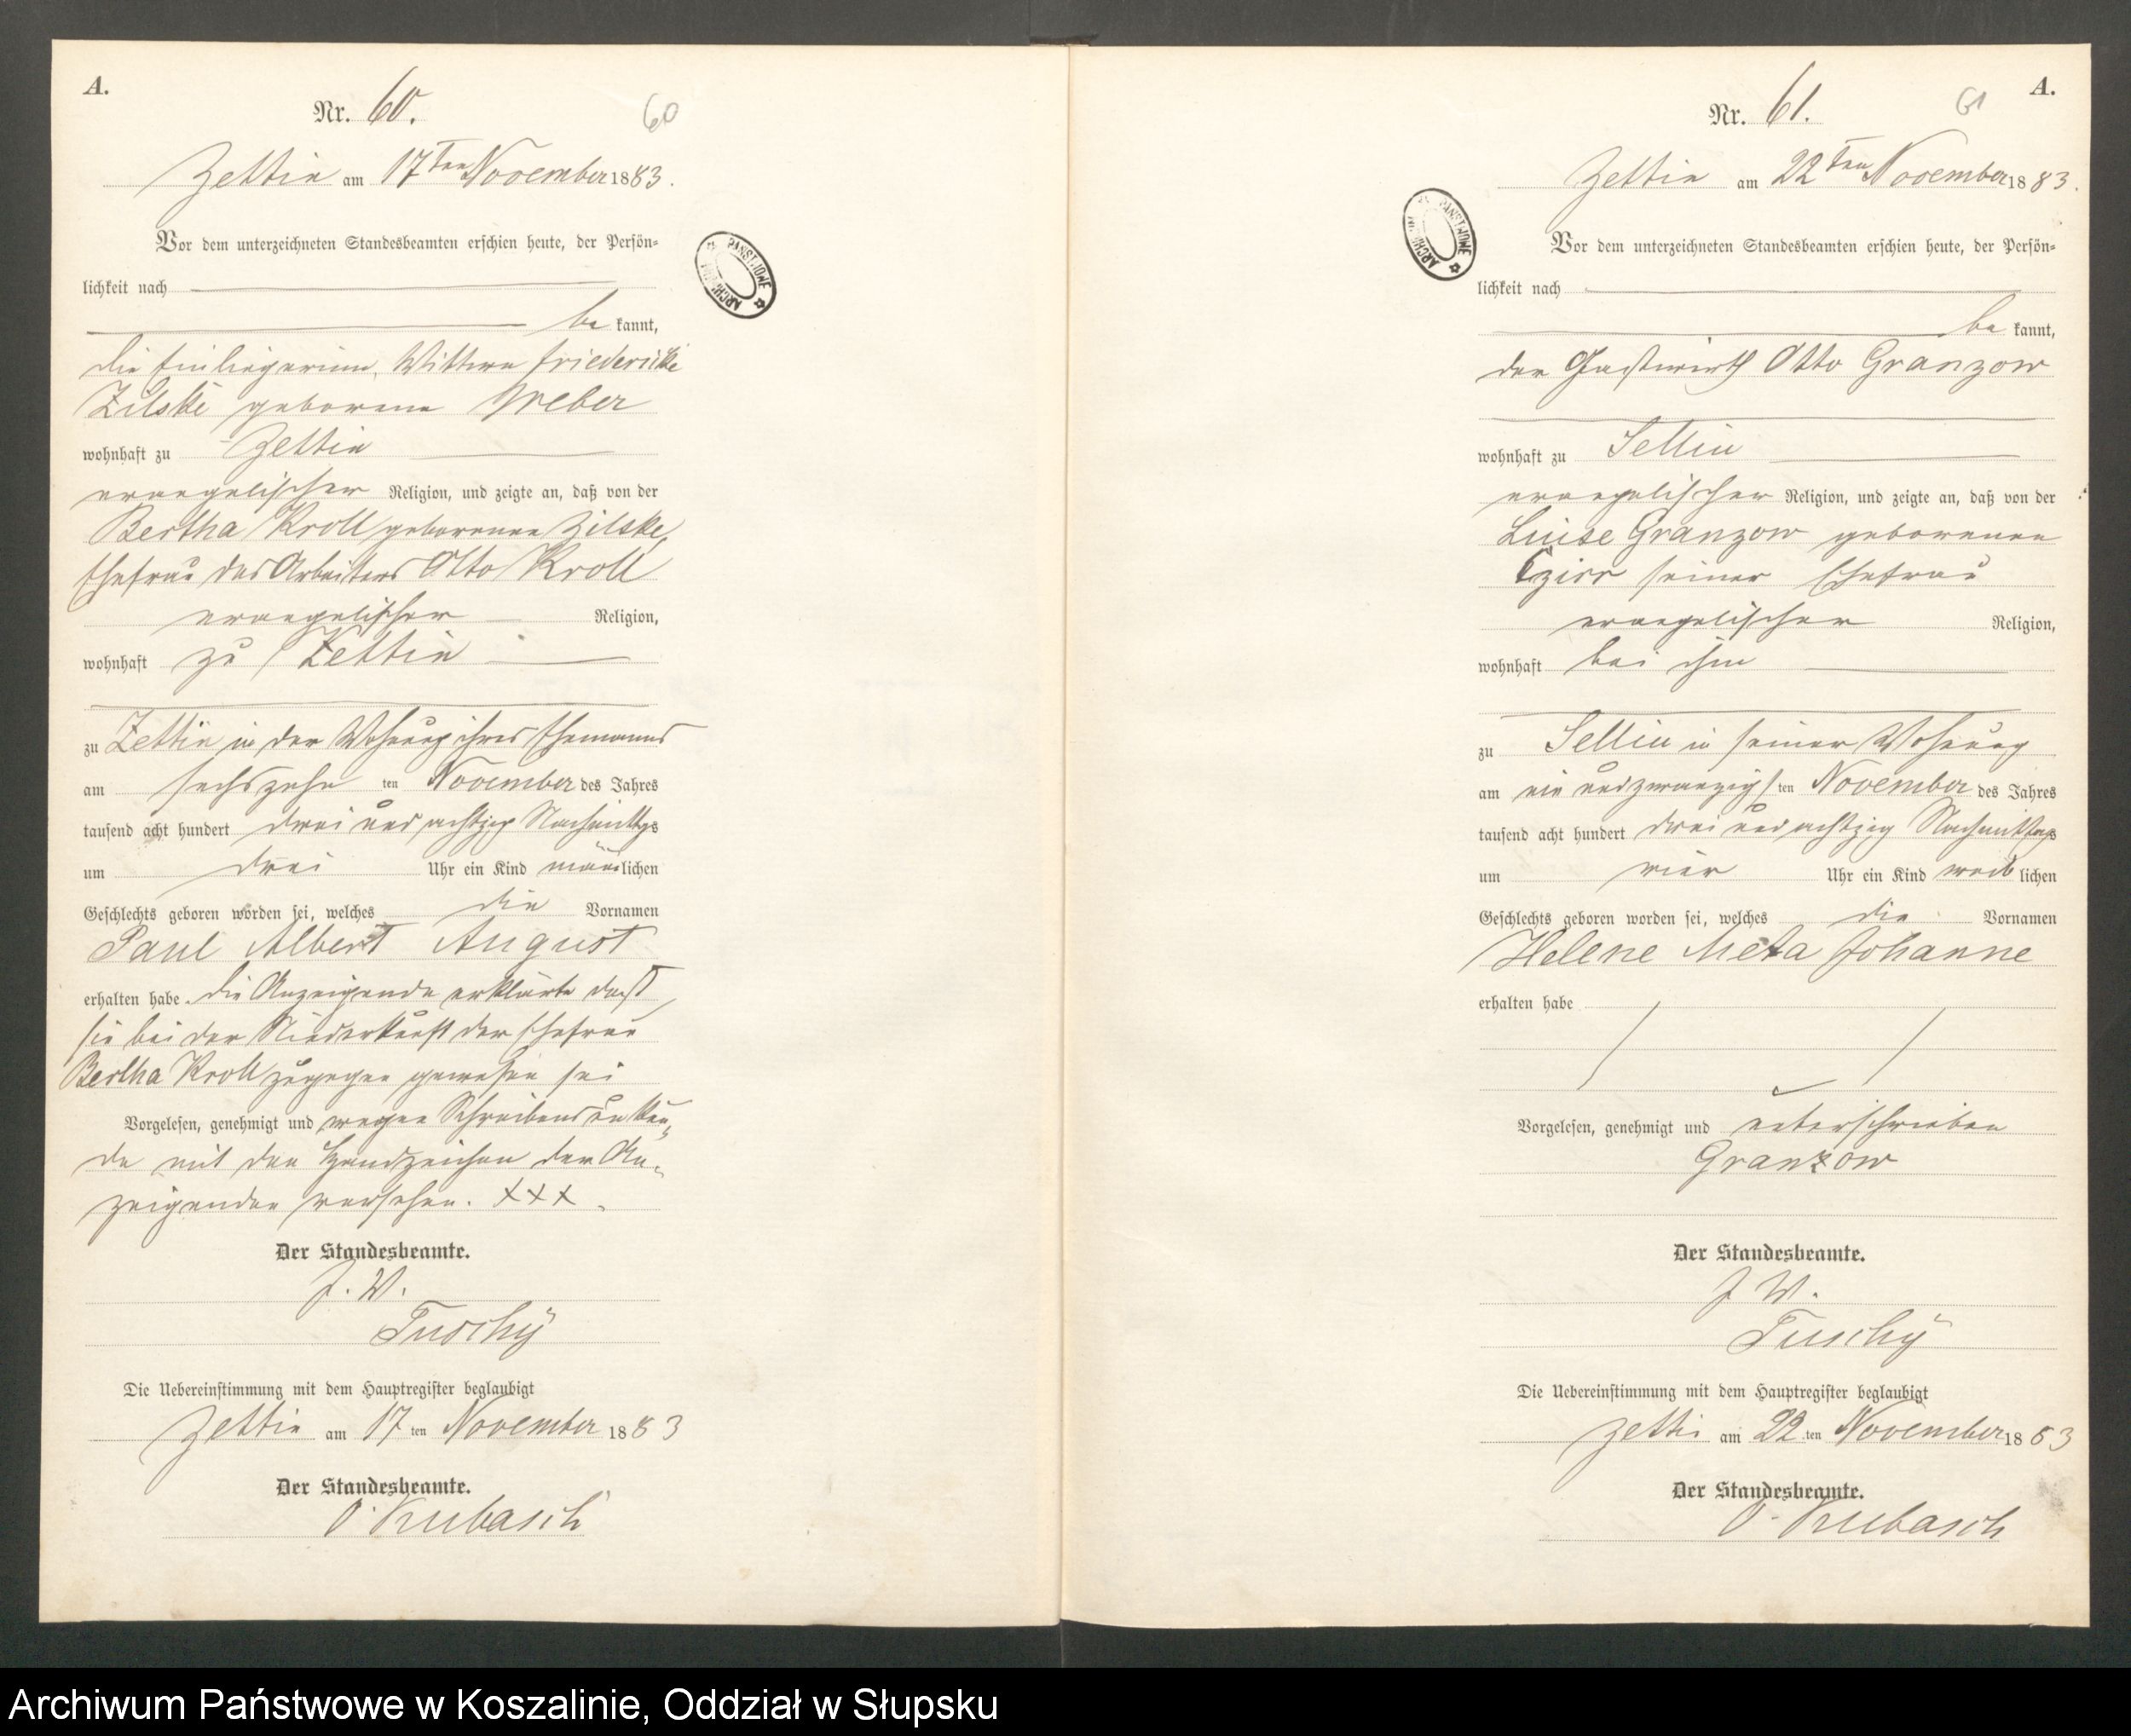 A.
Nr. 60.
60
Zettin am 17ten November 1883.
Vor dem unterzeichneten Standesbeamten erschien heute, der Persön=
lichkeit nach
be kannt,
die Einliegerinn, Wittwe Friedericke
Zilske geborene Weber
wohnhaft zu Zettin
evangelischer Religion, und zeigte an, daß von der
Bertha Kroll geborenen Zilske,
Ehefrau des Arbeiters Otto Kroll
evangelischer Religion,
wohnhaft zu Zettin
zu Zettin in der Wohnung ihres Ehemanns
am sechszehn ten November des Jahres
tausend acht hundert drei und achtzig Nachmittags
um drei Uhr ein Kind männlichen
Geschlechts geboren worden sei, welches die Vornamen
Paul Albert August
erhalten habe. Die Anzeigende erklärte daß
sie bei der Niederkunft der Ehefrau
Bertha Kroll zugegen gewesen sei
Vorgelesen, genehmigt und wegen Schreibensunkun=
de mit den Handzeichen der An=
zeigenden versehen. XXX.
Der Standesbeamte.
J. V.
Tuschy
Die Uebereinstimmung mit dem Hauptregister beglaubigt
Zettin am 17 ten November 1883
Der Standesbeamte.
O. Kubasch
ARCHIWUM PAŃSTWOWE
A.
Nr. 61.
61
Zettin am 22ten November 1883.
Vor dem unterzeichneten Standesbeamten erschien heute, der Persön=
lichkeit nach
be kannt,
der Gastwirth Otto Granzow
wohnhaft zu Sellin
evangelischer Religion, und zeigte an, daß von der
Luise Granzow geborenen
seiner Ehefrau
evangelischer Religion,
wohnhaft bei ihm
zu Sellin in seiner Wohnung
am ein und zwanzigs ten November des Jahres
tausend acht hundert drei und achtzig Nachmittags
um vier Uhr ein Kind weiblichen
Geschlechts geboren worden sei, welches die Vornamen
Helene Meta Johanne
erhalten habe
Vorgelesen, genehmigt und unterschrieben
Granzow
Der Standesbeamte.
J. V.
Tuschy
Die Uebereinstimmung mit dem Hauptregister beglaubigt
Zettin am 22 ten November 1883
Der Standesbeamte.
O. Kubasch
ARCHIWUM PAŃSTWOWE
Archiwum Państwowe w Koszalinie, Oddział w Słupsku